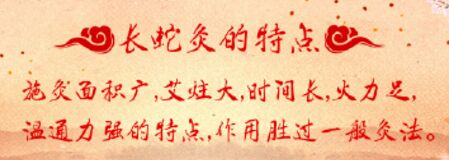 长蛇灸的特点
施灸面积广,艾炷大,时间长,火力足,
温通力强的特点,作用胜过一般灸法。